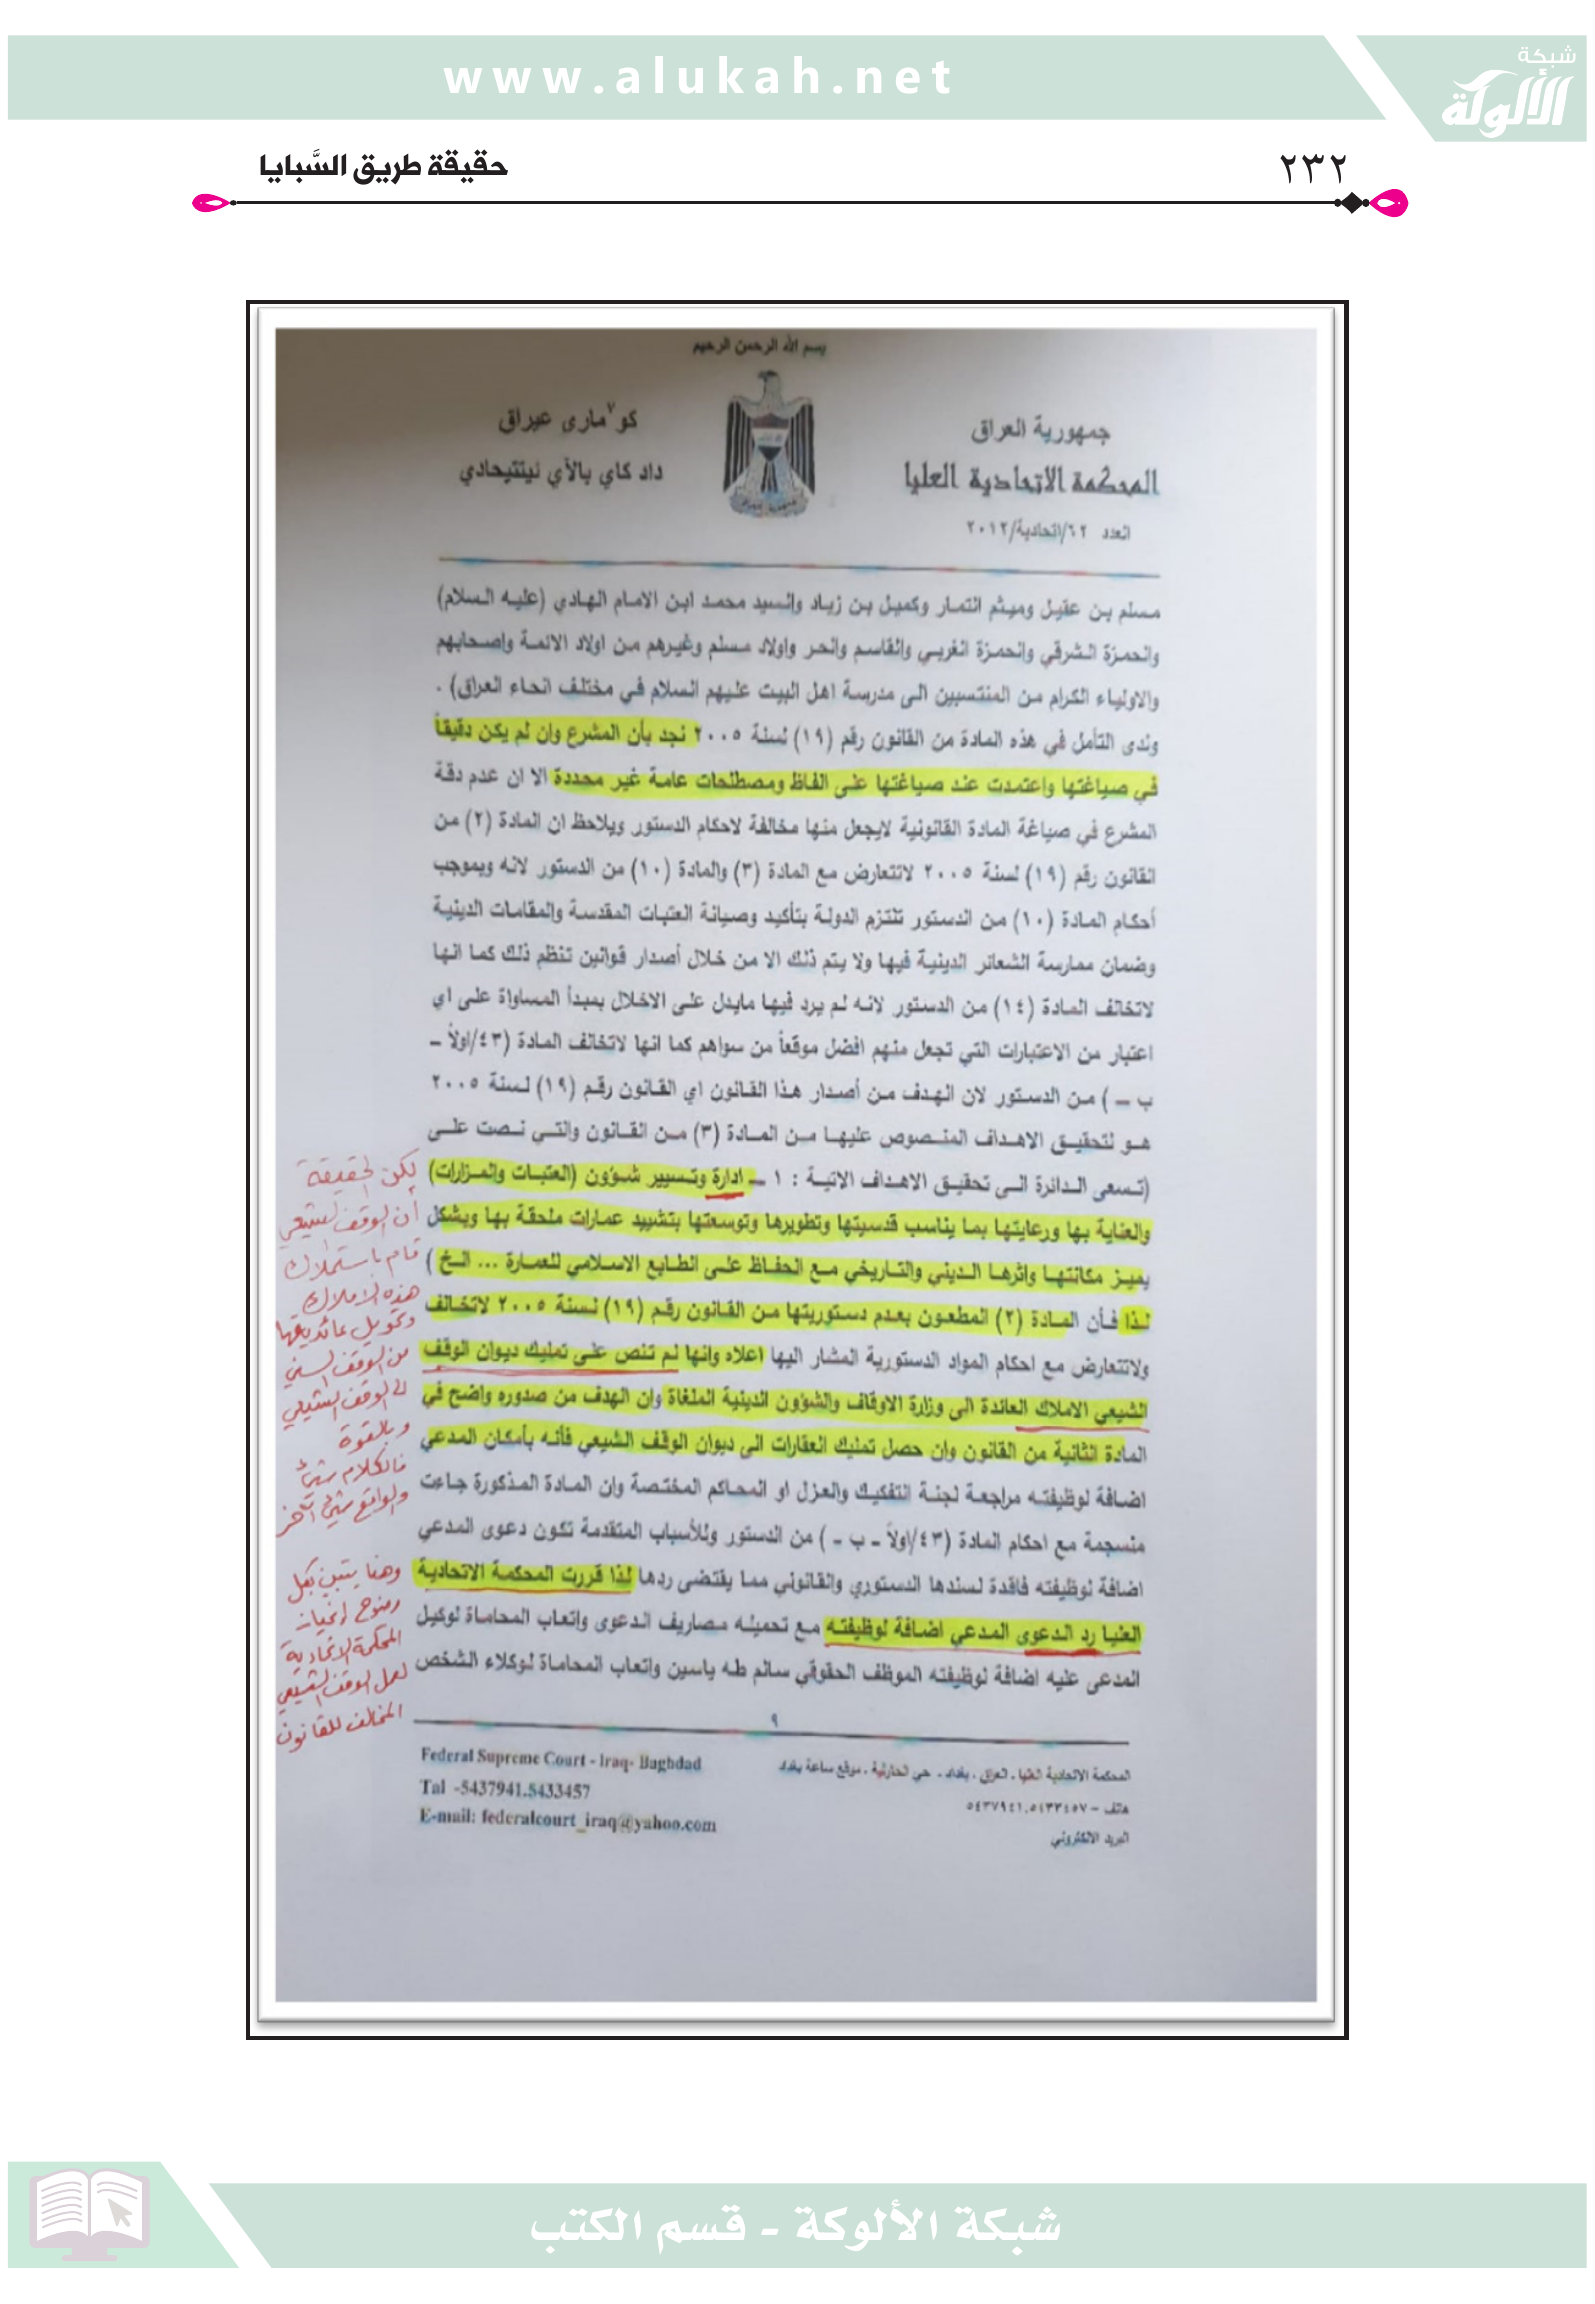 www.alukah.net
شبكة
الألوكة
٢٣٢
حقيقة طريق السَّبايا
بسم الله الرحمن الرحيم
جمهورية العراق
المحكمة الاتحادية العليا
العدد ٦٢/اتحادية/٢٠١٢
كو٧مارى عيراق
داد كاي بالآي ئيتتيحادي
مسلم بن عقيل وميثم التمار وكميل بن زياد والسيد محمد ابن الامام الهادي (عليه السلام)
والحمزة الشرقي والحمزة الغربي والقاسم والحر واولاد مسلم وغيرهم من اولاد الائمة واصحابهم
والاولياء الكرام من المنتسبين الى مدرسة اهل البيت عليهم السلام في مختلف انحاء العراق) .
ولدى التأمل في هذه المادة من القانون رقم (١٩) لسنة ٢٠٠٥ نجد بأن المشرع وان لم يكن دقيقاً
في صياغتها واعتمدت عند صياغتها على الفاظ ومصطلحات عامة غير محددة الا ان عدم دقة
المشرع في صياغة المادة القانونية لايجعل منها مخالفة لاحكام الدستور ويلاحظ ان المادة (٢) من
القانون رقم (١٩) لسنة ٢٠٠٥ لاتتعارض مع المادة (٣) والمادة (١٠) من الدستور لانه وبموجب
أحكام المادة (١٠) من الدستور تلتزم الدولة بتأكيد وصيانة العتبات المقدسة والمقامات الدينية
وضمان ممارسة الشعائر الدينية فيها ولا يتم ذلك الا من خلال أصدار قوانين تنظم ذلك كما انها
لاتخالف المادة (١٤) من الدستور لانه لم يرد فيها مايدل على الاخلال بمبدأ المساواة على اي
اعتبار من الاعتبارات التي تجعل منهم افضل موقعاً من سواهم كما انها لاتخالف المادة (٤٣/اولاً ـ
ب ـ ) من الدستور لان الهدف من أصدار هذا القانون اي القانون رقم (١٩) لسنة ٢٠٠٥
هو لتحقيق الاهداف المنصوص عليها من المادة (٣) من القانون والتي نصت على
(تسعى الدائرة الى تحقيق الاهداف الاتية : ١ ـ ادارة وتسيير شؤون (العتبات والمزارات)
والعناية بها ورعايتها بما يناسب قدسيتها وتطويرها وتوسعتها بتشييد عمارات ملحقة بها وبشكل
يميز مكانتها واثرها الديني والتاريخي مع الحفاظ على الطابع الاسلامي للعمارة ... الخ )
لذا فأن المادة (٢) المطعون بعدم دستوريتها من القانون رقم (١٩) لسنة ٢٠٠٥ لاتخالف
ولاتتعارض مع احكام المواد الدستورية المشار اليها اعلاه وانها لم تنص على تمليك ديوان الوقف
الشيعي الاملاك العائدة الى وزارة الاوقاف والشؤون الدينية الملغاة وان الهدف من صدوره واضح في
المادة الثانية من القانون وان حصل تمليك العقارات الى ديوان الوقف الشيعي فأنه بأمكان المدعي
اضافة لوظيفته مراجعة لجنة التفكيك والعزل او المحاكم المختصة وان المادة المذكورة جاءت
منسجمة مع احكام المادة (٤٣/اولاً ـ ب ـ ) من الدستور وللأسباب المتقدمة تكون دعوى المدعي
اضافة لوظيفته فاقدة لسندها الدستوري والقانوني مما يقتضى ردها لذا قررت المحكمة الاتحادية
العليا رد الدعوى المدعي اضافة لوظيفته مع تحميله مصاريف الدعوى واتعاب المحاماة لوكيل
المدعى عليه اضافة لوظيفته الموظف الحقوقي سالم طه ياسين واتعاب المحاماة لوكلاء الشخص
لكن الحقيقة
أن الوقف الشيعي
قام باستملاك
هذه الأملاك
وتحويل عائديتها
من الوقف السني
الى الوقف الشيعي
وبالقوة
فالكلام شيئ
والواقع شيئ آخر
وهنا يتبين بكل
وضوح انحياز
المحكمة الاتحادية
لعمل الوقف الشيعي
المخالف للقانون
٩
المحكمة الاتحادية العليا ـ العراق ـ بغداد ـ حي الحارثية ـ موقع ساعة بغداد
هاتف – ٥٤٣٧٩٤١،٥٤٣٣٤٥٧
البريد الالكتروني
Federal Supreme Court - Iraq- Baghdad
Tal -5437941.5433457
E-mail: federalcourt_iraq@yahoo.com
شبكة الألوكة - قسم الكتب